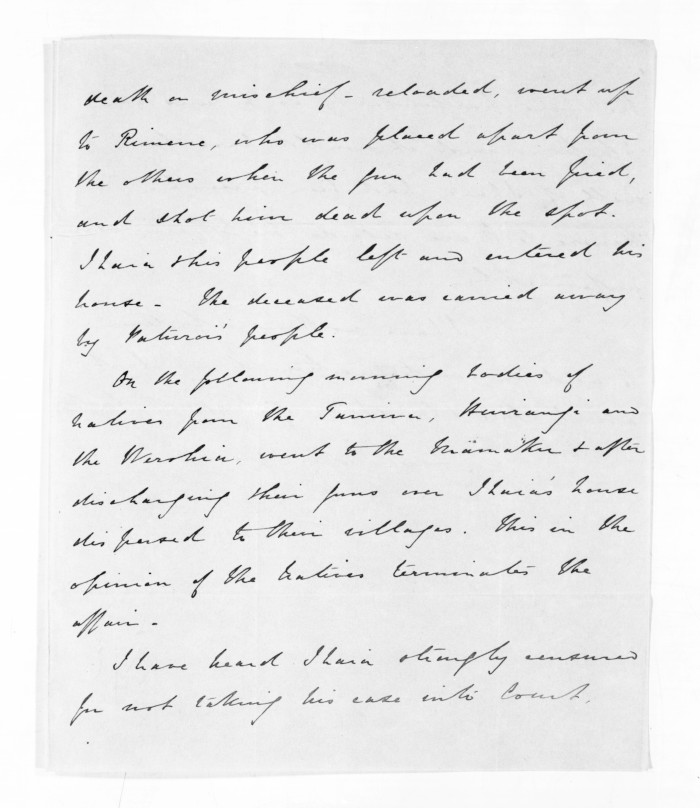 death or mischief - reloaded, went up
to Rimene, who was placed apart from
the others when the gun had been fired,
and shot him dead upon the spot.
Ihaia & his people left and entered his
house - The deceased was carried away
by people.
On the following morning bodies of
natives from the Huirangi and
the went to the & after
discharging their guns over Ihaia's house
dispersed to their villages. This in the
opinion of the Natives terminates the
affair -
I have heard Ihaia strongly censured
for not taking his case into Court,